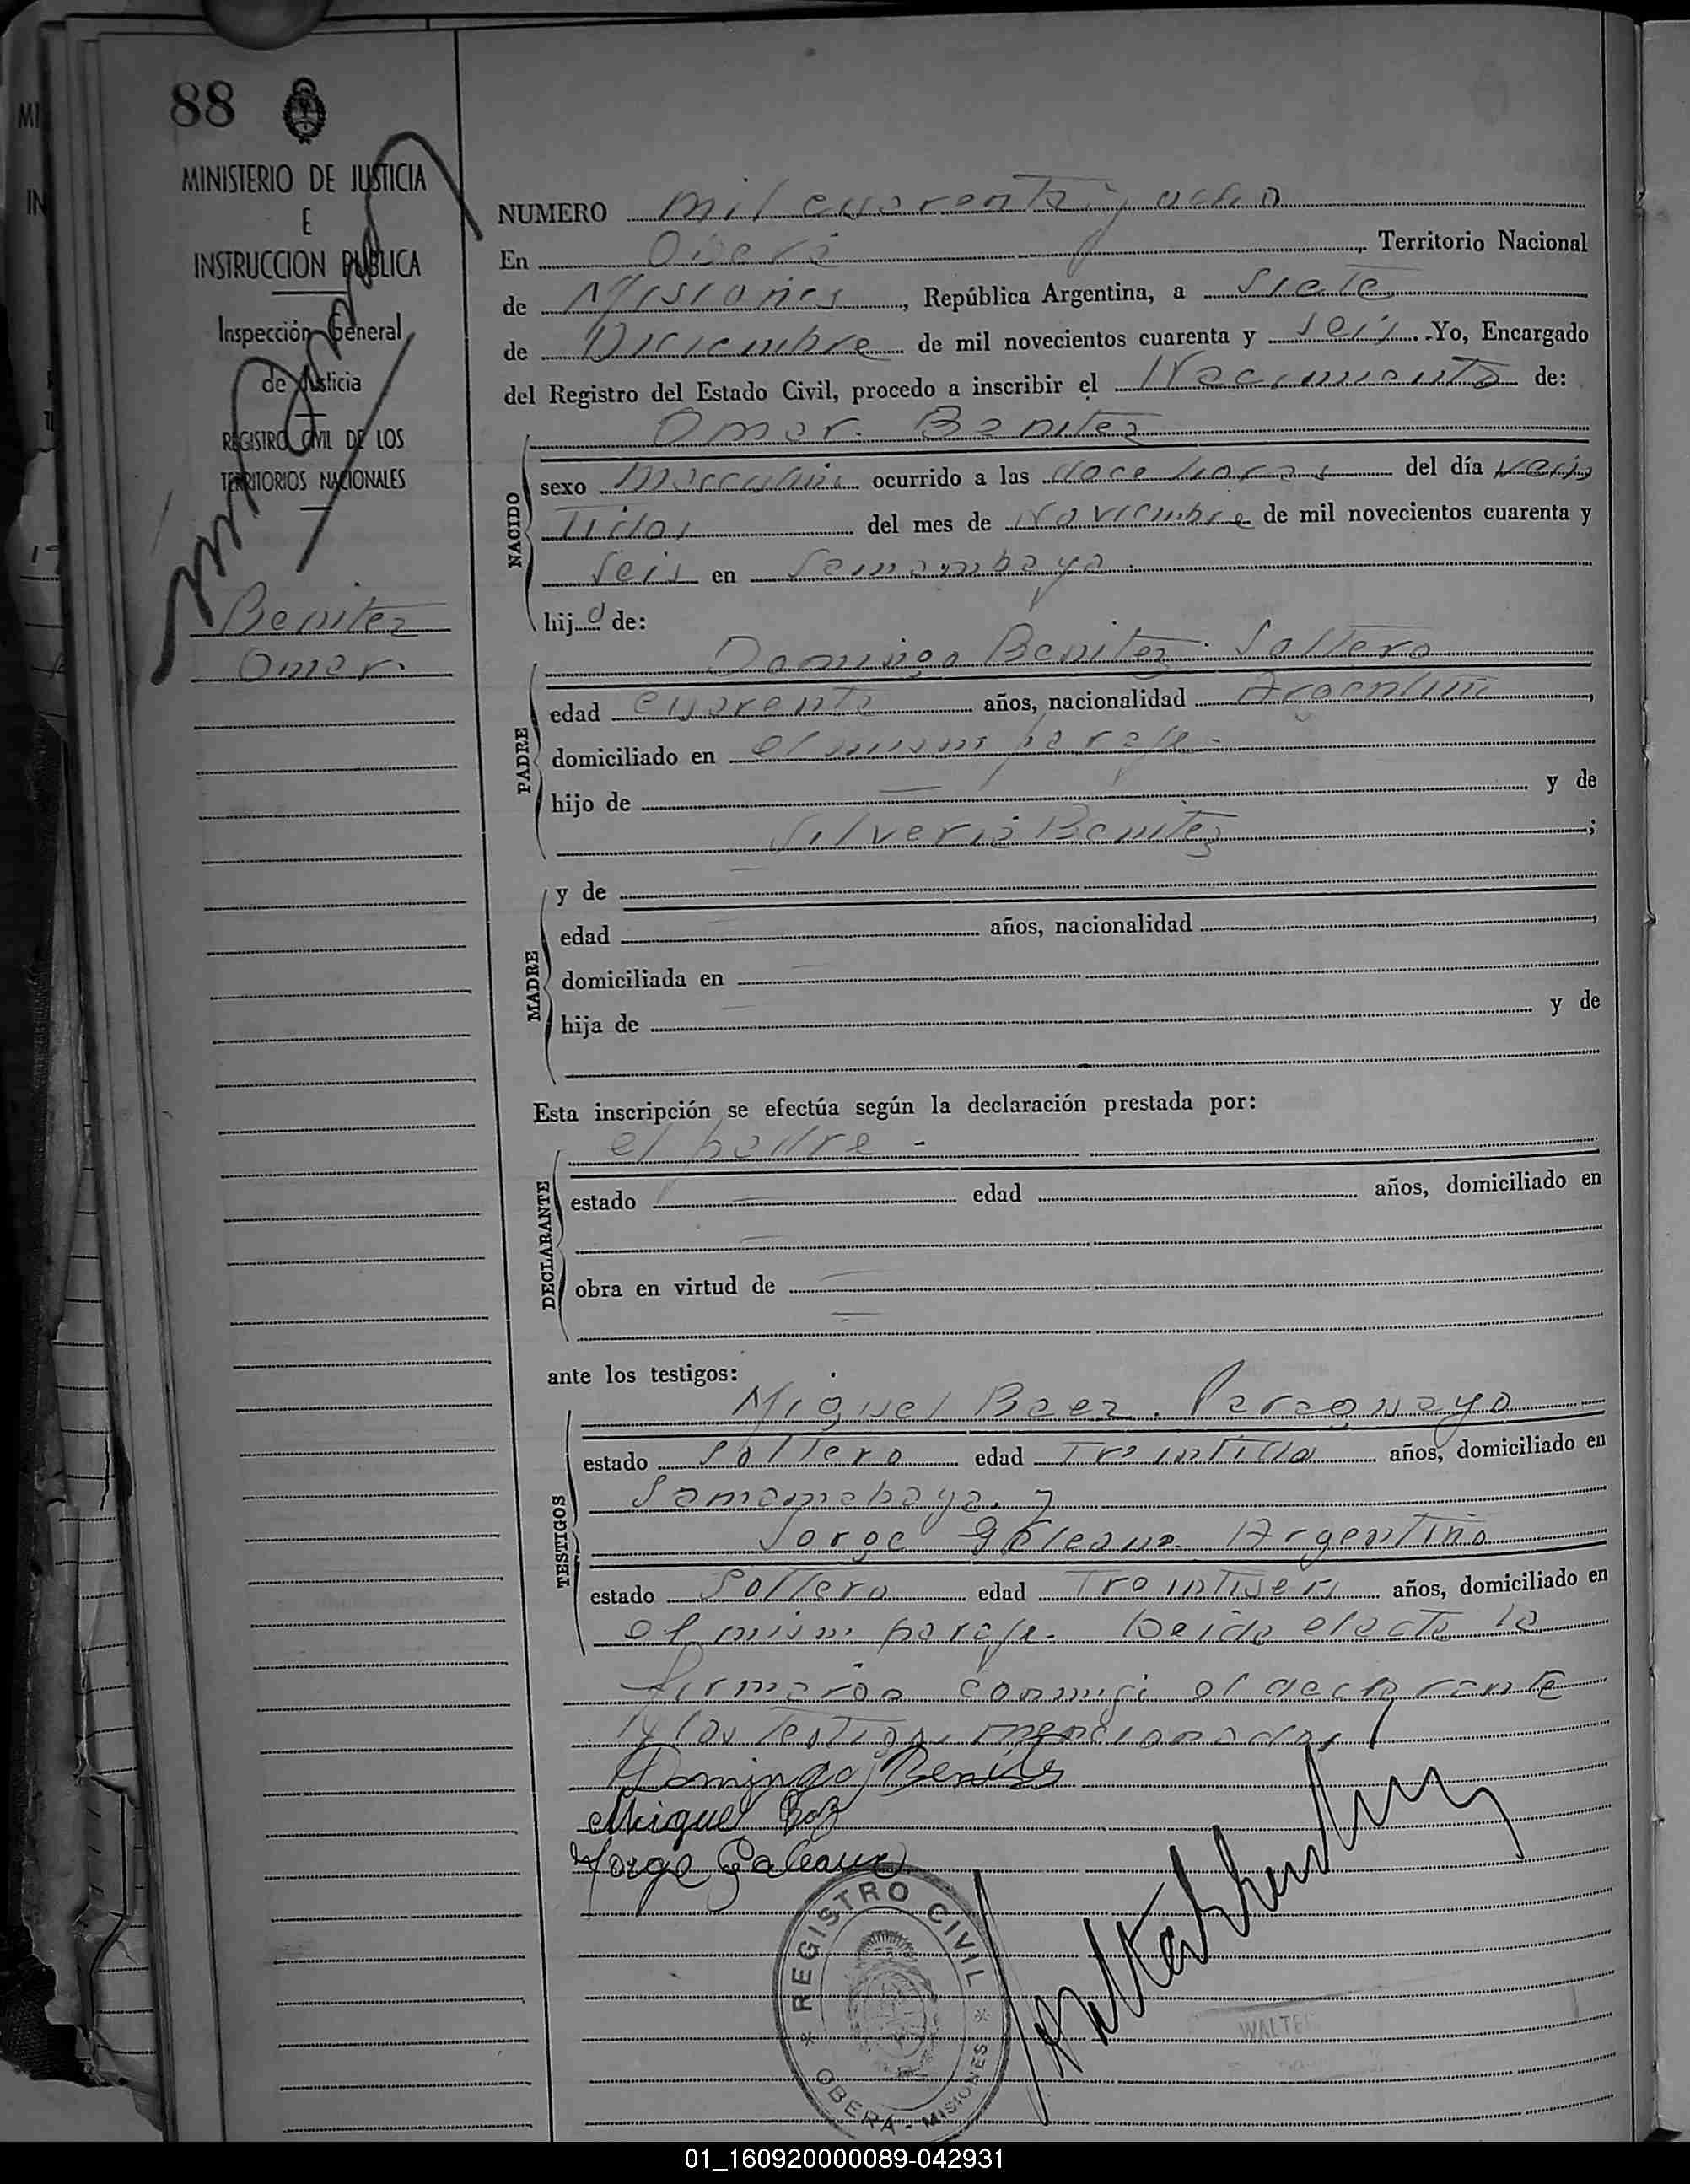 88
MINISTERIO DE JUSTICIA
E
INSTRUCCION PUBLICA
Inspección General
de Justicia
REGISTRO CIVIL DE LOS
TERRITORIOS NACIONALES
Benitez
Omar.
NUMERO mil cuarenta y ocho
En Oberá, Territorio Nacional
de Misiones, República Argentina, a Siete
de Diciembre de mil novecientos cuarenta y seis. Yo, Encargado
del Registro del Estado Civil, procedo a inscribir el Nacimiento de:
Omar. Benitez
NACIDO
sexo Masculino ocurrido a las doce horas del día Vein
tidos del mes de Noviembre de mil novecientos cuarenta y
seis en Samambaya.
hijo de:
Domingo Benitez. Soltero
PADRE
edad cuarenta años, nacionalidad Argentino,
domiciliado en el mismo paraje.-
hijo de — y de
Silveria Benitez;
MADRE
y de
edad años, nacionalidad,
domiciliada en
hija de y de
Esta inscripción se efectúa según la declaración prestada por:
el padre -
DECLARANTE
estado edad años, domiciliado en
obra en virtud de
ante los testigos:
Miguel Baez. Paraguayo
TESTIGOS
estado Soltero edad años, domiciliado en
Samambaya. y
Jorge Galeano. Argentino
estado Soltero edad Treintiseis años, domiciliado en
el mismo paraje. Leida el acta la
firmaron conmigo el declarante
y los testigos mencionados
Domingo Benites
Miguel Baz
Jorge Galeano
REGISTRO CIVIL
OBERA - MISIONES
WALTER
01_160920000089-042931